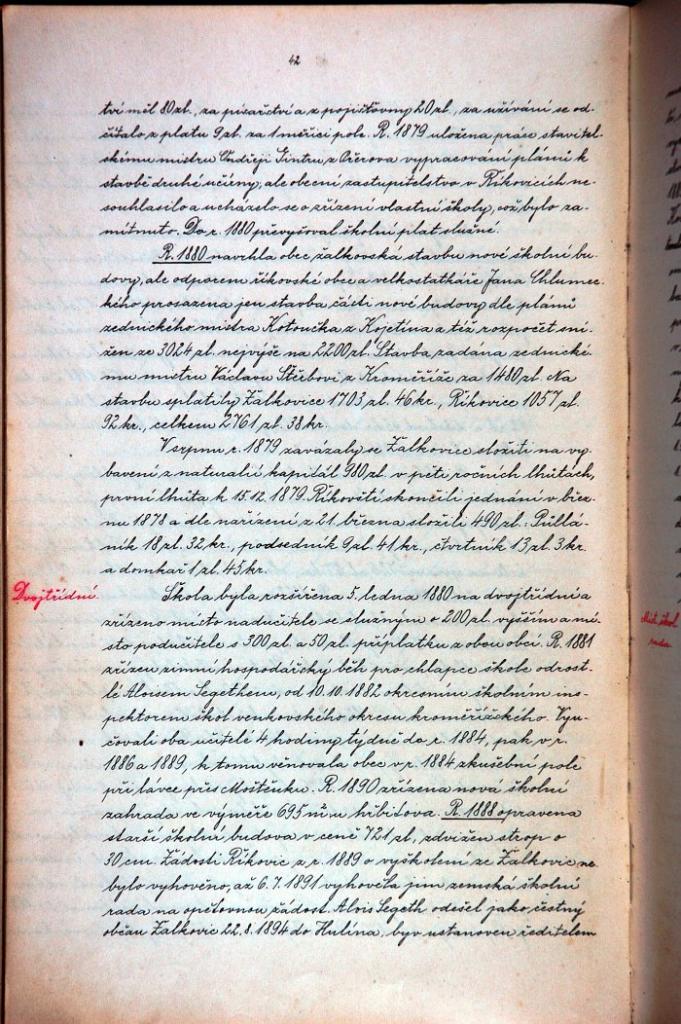 42
tví měl 80 zl., za písařství a z pojišťovny 20 zl., za užívání se od-
čítalo z platu 9 zl. za 1 měřici pole. R. 1879 uložena práce stavitel-
skému mistru Ondřeji Gintru z Ořerova vypracování plánů k
stavbě druhé učírny, ale obecní zastupitelstvo v Říkovicích ne-
souhlasilo a ucházelo se o zřízení vlastní školy, což bylo za-
mítnuto. Do r. 1880 převyšoval školní plat služné.
R. 1880 navrhla obec žalkovská stavbu nové školní bu-
dovy, ale odporem říkovské obce a velkostatkáře Jana Chlumec-
kého prosazena jen stavba části nové budovy dle plánů
zednického mistra Kotoučka z Kojetína a též rozpočet sní-
žen ze 3024 zl. nejvýše na 2200 zl. Stavba zadána zednické-
mu mistru Václavu Štěrbovi z Kroměříže za 1480 zl. Na
stavbu splatily Žalkovice 1703 zl. 46 kr., Říkovice 1057 zl.
92 kr., celkem 2761 zl. 38 kr.
V srpnu r. 1879 zavázaly se Žalkovice složiti na vy-
bavení z naturalií kapitál 980 zl. v pěti ročních lhůtách,
první lhůta k 15.12. 1879. Říkovští skončili jednání v břez-
nu 1878 a dle nařízení z 21. března složili 490 zl.: Půllá-
ník 18 zl. 32 kr., podsedník 9 zl. 41 kr., čtvrtník 13 zl. 3 kr.
a domkař 1 zl. 45 kr.
Dvojtřídní. Škola byla rozšířena 5. ledna 1880 na dvojtřídní a
zřízeno místo nadučitele se služným o 200 zl. vyšším a mí-
sto podučitele s 300 zl. a 50 zl. příplatku z obou obcí. R. 1881
zřízen zimní hospodářský běh pro chlapce škole odrost-
lé Aloisem Segethem, od 10.10. 1882 okresním školním ins-
pektorem škol venkovského okresu kroměřížského. Vyu-
čovali oba učitelé 4 hodiny týdně do r. 1884, pak v r.
1886 a 1889, k tomu věnovala obec v r. 1884 zkušební pole
při lávce přes Moštěnku. R. 1890 zřízena nová školní
zahrada ve výměře 695 m² u hřbitova. R. 1888 opravena
starší školní budova v ceně 721 zl., zdvižen strop o
30 cm. Žádosti Říkovic z r. 1889 o vyškolení ze Žalkovic ne-
bylo vyhověno, až 6.7. 1891 vyhověla jim zemská školní
rada na opětovnou žádost. Alois Segeth odešel jako čestný
občan Žalkovic 22.8. 1894 do Hulína, byv ustanoven ředitelem
Míst. škol.
rada